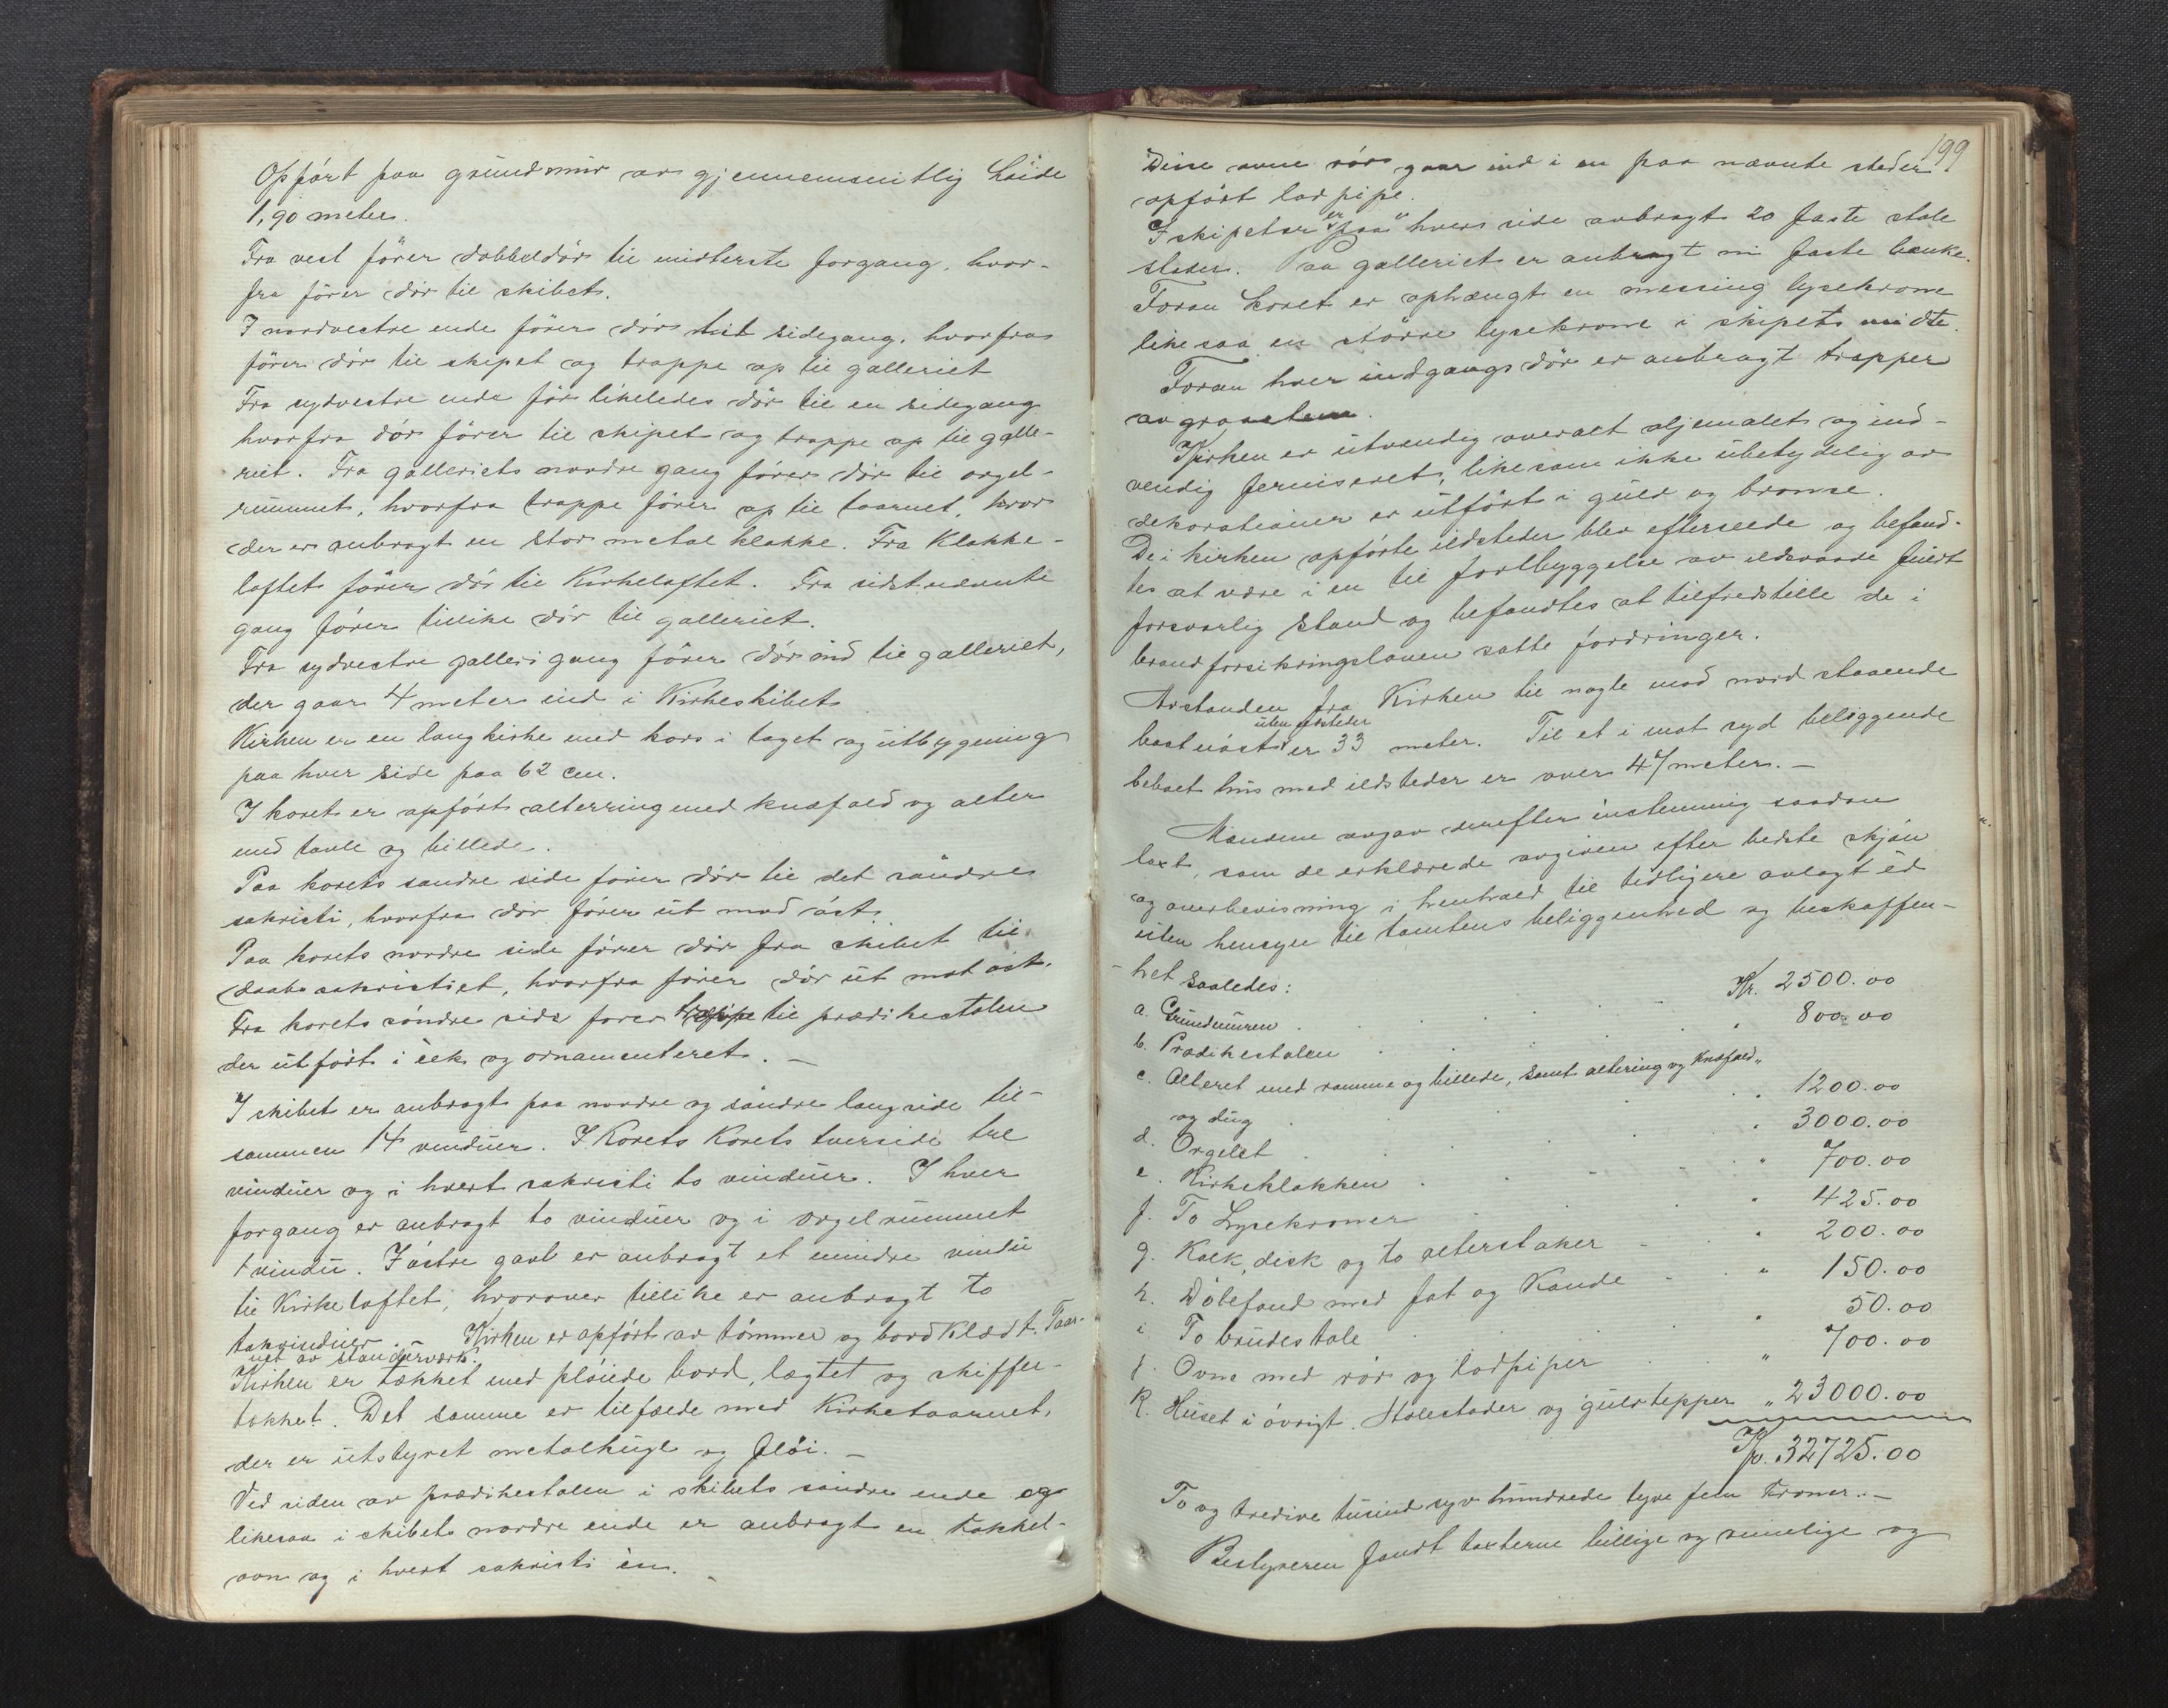 Opført paa grundmur av gjennemsnitlig høide
1,90 meter.
Fra vest fører dobbeldør til midterste forgang, hvor-
fra fører dør til skibet.
I nordvestre ende fører dør til sidegang, hvorfra
fører dør til skipet og trappe op til galleriet
Fra sydvestre ende før likeledes dør til en sidegang
hvorfra dør fører til skipet og trappe op til galle-
riet. Fra galleriets nordre gang fører dør til orgel-
rummet, hvorfra trappe fører op til taarnet, hvor
der er anbragt en stor metal klokke. Fra Klokke-
loftet fører dør til Kirkeloftet. Fra sidstnævnte
gang fører tillike dør til galleriet.
Fra sydvestre galleri gang fører dør ind til galleriet,
der gaar 4 meter ind i Kirkeskibet
Kirken er en langkirke med kors i taget og utbygning
paa hver side paa 62 cm.
I koret er opført alterring med knæfald og alter
med tavle og billede.
Paa korets søndre side fører dør til det søndre
sakristi, hvorfra dør fører ut mod øst.
Paa korets nordre side fører dør fra skibet til
daabssakristiet, hvorfra fører dør ut mot øst.
Fra korets søndre side fører trappe til prædikestolen
der utført i eek og ornamenteret. —
I skibet er anbragt paa nordre og søndre langside til-
sammen 14 vinduer. I Korets Korets tverside tre
vinduer og i hvert sakristi to vinduer. I hver
forgang er anbragt to vinduer og i orgelrummet
1 vindu. I østre gavl er anbragt et mindre vindu
til Kirkeloftet, hvorover tillike er anbragt to
takvinduer. — Kirken er opført av tømmer og bordklædt. Taar-
net av standerverk.
Kirken er tækket med pløiede bord, lægtet og skiffer-
tækket. Det samme er tilfælde med Kirketaarnet,
der er utstyret metalkugle og fløi. —
Ved siden av prædikestolen i skibets søndre ende og
likesaa i skibets nordre ende er anbragt en kakkel-
ovn og i hvert sakristi én. —
199
Disse ovne rør gaar ind i en paa nævnte steder
opført lodpipe.
I skipet er paa hver side anbragt 20 faste stole
stader. Paa galleriet er anbragt ni faste bænke.
Foran koret er ophængt en messing lysekrone
likesaa en større lysekrone i skipets midte.
Foran hver indgangsdør er anbragt trapper
av graasten.
Kirken er utvendig overalt oljemalet og ind-
vendig ferniseret, likesom ikke ubetydelig av
dekorationer er utført i guld og bronse.
De i kirken opførte ildsteder blev efterseede og befand-
tes at være i en til forebyggelse av ildsvaade fuldt
forsvarlig stand og befandtes at tilfredstille de i
brandforsikringsloven satte fordringer.
Avstanden fra Kirken til nogle mod nord staaende
uten ildsteder
baatnøst er 33 meter. Til et i mot syd beliggende
beboet hus med ildsteder er over 47 meter. —
Mændene avgav derefter instemmig saadan
taxt, som de erklærede avgiven efter bedste skjøn
og overbevisning i henhold til tidligere avlagt ed
uten hensyn til tomtens beliggenhed og beskaffen-
-het saaledes:
a. Grundmuren . . . . Kr. 2500.00
b. Prædikestolen . . . . " 800.00
c. Alteret med ramme og billede, samt altering og Knæfald "
og dug . . . . " 1200.00
d. Orgelet . . . . " 3000.00
e. Kirkeklokken . . . . " 700.00
f. To Lysekroner . . . . " 425.00
g. Kalk, disk og to alterstaker . . " 200.00
h. Døbefond med fat og Kande . . " 150.00
i. To brudestole . . . . " 50.00
j. Ovne med rør og lodpiper . . " 700.00
k. Huset i øvrigt. Stolestader og gulvtepper " 23000.00
Kr. 32725.00
To og tredive tusind syv hundrede tyve fem Kroner. —
Bestyreren fandt taxterne billige og rimelige og